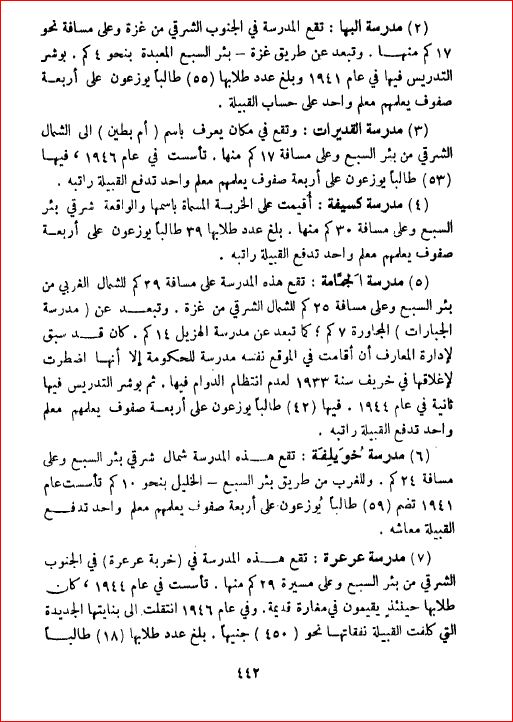 (٢) مدرسة البها : تقع المدرسة في الجنوب الشرقي من غزة وعلى مسافة نحو
١٧ كم منهـا . وتبعد عن طريق غزة – بئر السبع المعبدة بنحو ٤ كم . بوشر
التدريس فيها في عام ١٩٤١ وبلغ عدد طلابها (٥٥) طالباً يوزعون على أربعـة
صفوف يعلمهم معلم واحد على حساب القبيلة .
(٣) مدرسة القديرات : وتقع في مكان يعرف باسم ( أم بطين ) الى الشمال
الشرقي من بئر السبع وعلى مسافة ١٧ كم منها . تأسست في عام ١٩٤٦ ، فيهـا
(٥٣) طالباً يوزعون على أربعة صفوف يعلمهم معلم واحد تدفع القبيلة راتبه .
(٤) مدرسة كسيفة : أقيمت على الخربـة المسماة باسمها والواقعة شرقي بئر
السبع وعلى مسافة ٣٠ كم منها . بلغ عدد طلابها ٣٩ طالباً يوزعون على أربعـة
صفوف يعلمهم معلم واحد تدفع القبيلة راتبه .
(٥) مدرسة الجمّامة : تقع هذه المدرسة على مسافة ٣٩ كم للشمال الغربي من
بئر السبع وعلى مسافة ٢٥ كم للشمال الشرقي من غزة . وتبعـد عن ( مدرسة
الجبارات ) المجاورة ٧ كم ؛ كما تبعد عن مدرسة الهزيل ١٤ كم . كان قـد سبق
لإدارة المعارف أن أقامت في الموقع نفسه مدرسة للحكومة إلا أنهـا اضطرت
لإغلاقها في خريف سنة ١٩٣٣ لعدم انتظام الدوام فيها . ثم بوشر التدريس فيها
ثانية في عام ١٩٤٤ . فيها (٤٢) طالباً يوزعون على أربعـة صفوف يعلمهم معلم
واحد تدفع القبيلة راتبه .
(٦) مدرسة خويلفة : تقع هـذه المدرسة شمال شرقي بئر السبع وعلى
مسافة ٢٤ كم . وللغرب من طريق بئر السبع – الخليل بنحو ١٠ كم تأسست عام
١٩٤١ تضم (٥٩) طالباً يُوزعون على أربعة صفوف يعلمهم معلم واحد تدفـع
القبيلة معاشه .
(٧) مدرسة عرعرة : تقع هـذه المدرسة في (خربة عرعرة) في الجنوب
الشرقي من بئر السبع وعلى مسيرة ٢٩ كم منها . تأسست في عام ١٩٤٤ ، كان
طلابها حينئذ يقيمون في مغارة قديمة. وفي عام ١٩٤٦ انتقلت الى بنايتها الجديدة
التي كلفت القبيلة نفقاتهـا نحو ( ٤٥٠ ) جنيهاً . بلغ عدد طلابها (١٨) طالبـاً
٤٤٢